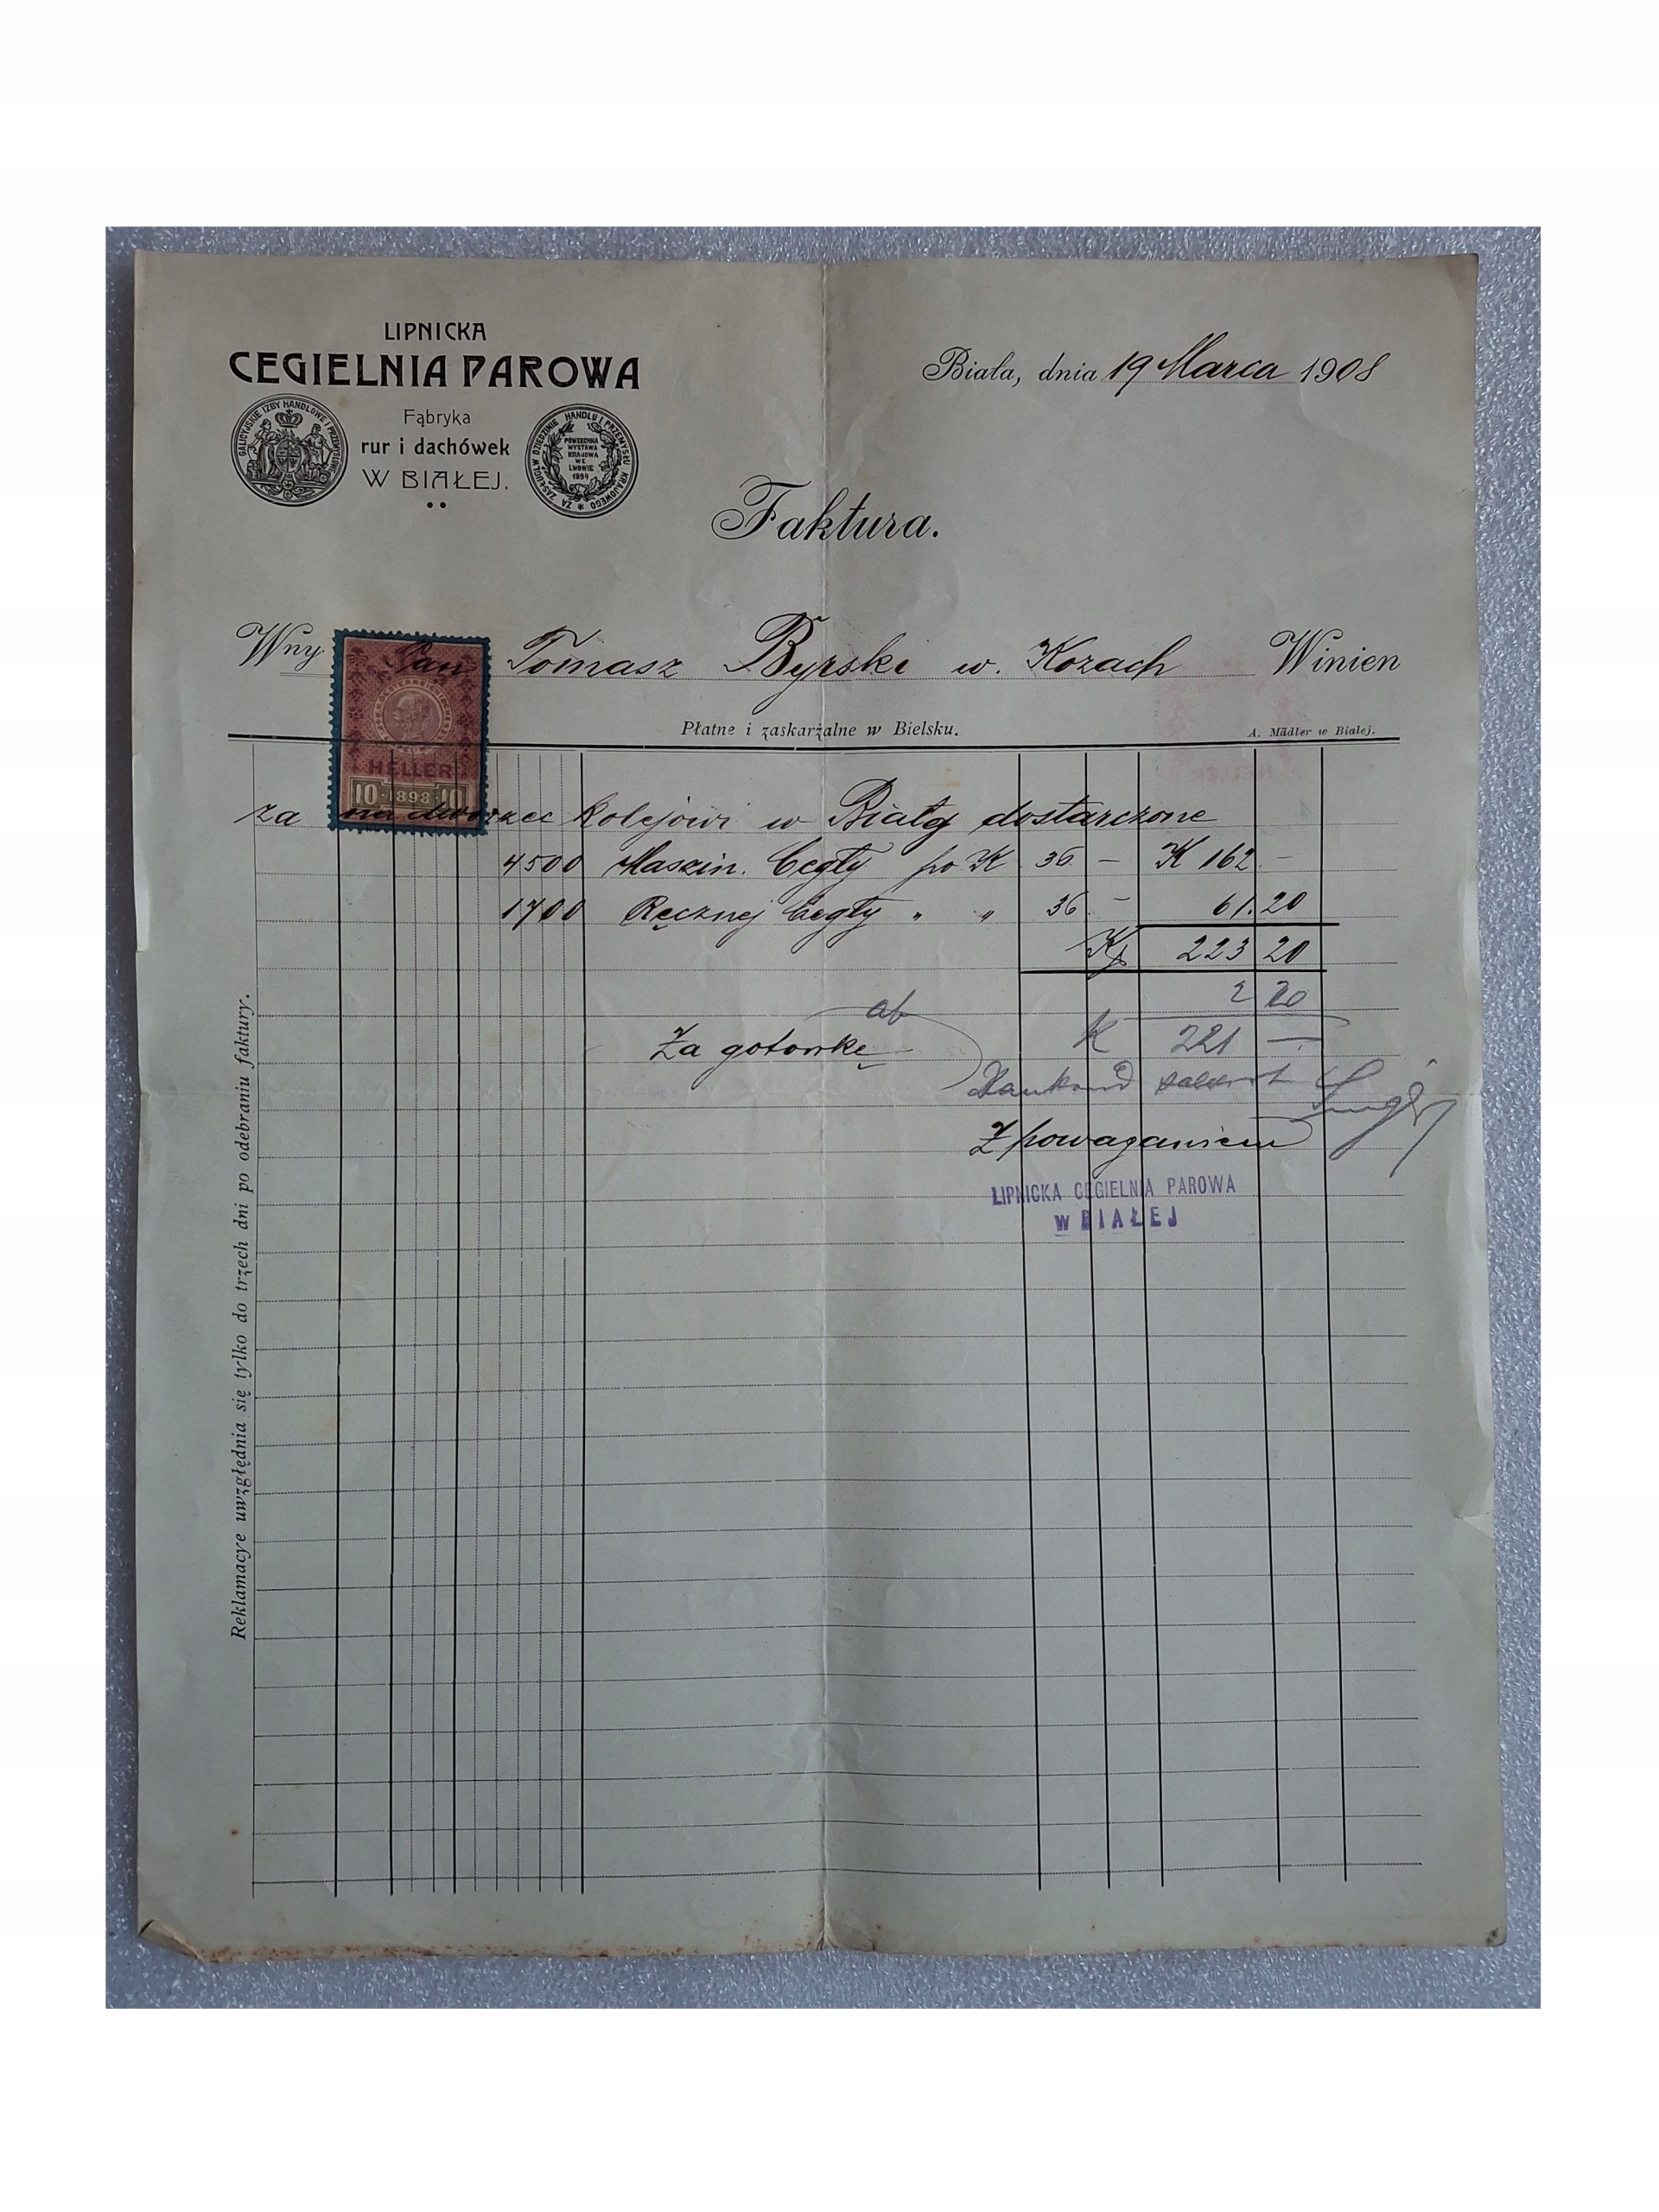 LIPNICKA
CEGIELNIA PAROWA
Fąbryka
rur i dachówek
W BIAŁEJ.
GALICYJSKIE IZBY HANDLOWE I PRZEMYSŁOWE
ZA ZASŁUGI W DZIEDZINIE HANDLU I PRZEMYSŁU KRAJOWEGO
POWZECHNA
WYSTAWA
KRAJOWA
WE
LWOWIE
1894
Biała, dnia 19 Marca 1908
Faktura.
Wny Pan Tomasz Byrski w. Kozach Winien
Płatne i zaskarżalne w Bielsku.
A. Mädler w Białej.
HELLER
10 1898 10
za na dworzec kolejowi w Biały dostarczone
4500 Maszin. Cegły po K 36 – K 162 –
1700 Ręcznej Cegły " " 36 – 61.20
K 223 20
2 20
ab
Za gotowkę K 221 —
Z powaganiem
LIPNICKA CEGIELNIA PAROWA
W BIAŁEJ
Reklamacye uwzględnia się tylko do trzech dni po odebraniu faktury.